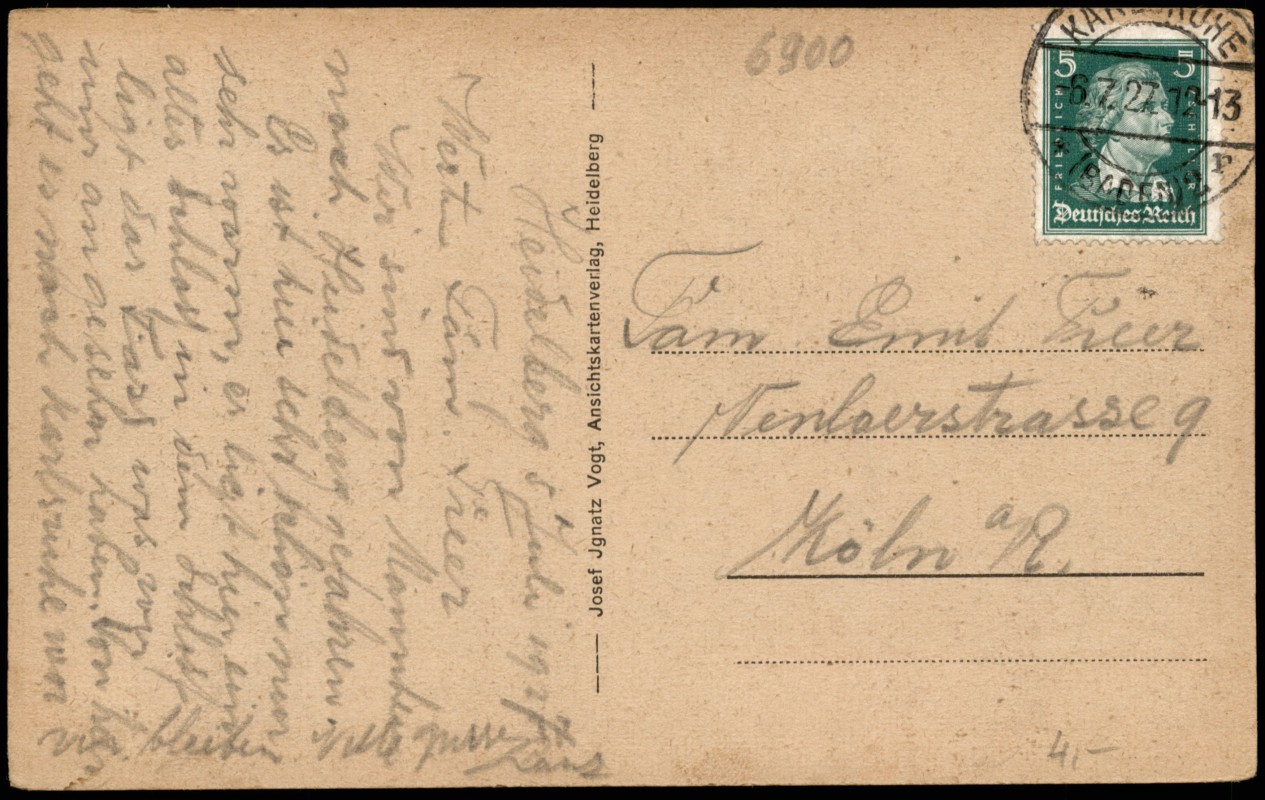 Heidelberg 5 Juli 1927
Werte Fam. Freer
Wir sind von Mannheim
nach Heidelberg gefahren.
Es ist hier sehr schön nur
sehr warm, es liegt hier ein
altes Schloß in dem Schloß
liegt das Faß was wir
uns angesehen haben. Von hier
geht es nach Karlsruhe wo
wir bleiben Viele Grüsse
Hans
Josef Jgnatz Vogt, Ansichtskartenverlag, Heidelberg
6900
KARLSRUHE
-6.7.27. 12-13
(BADEN) 2
5 5
FRIEDRICH SCHILLER
Deutsches Reich
Fam Emil Freer
9
Köln a R.
4,-